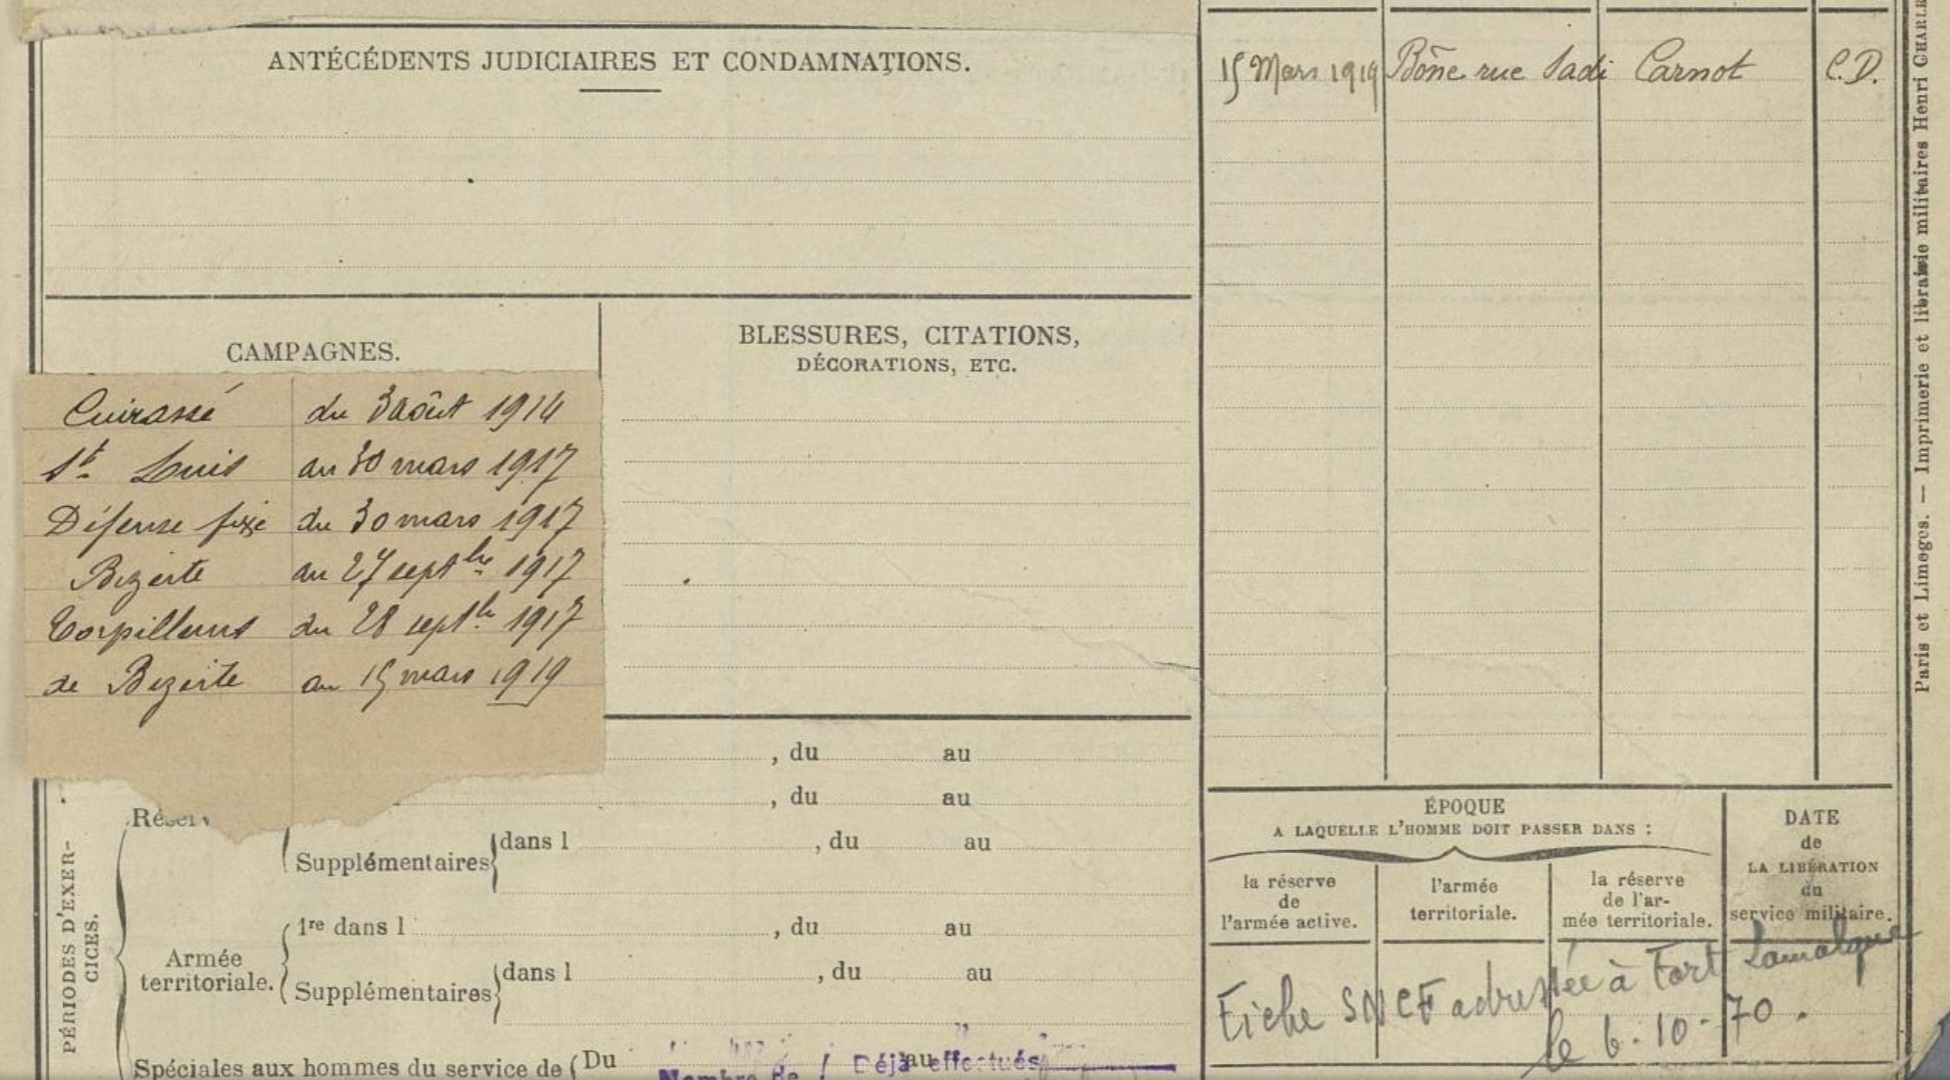 ANTÉCÉDENTS JUDICIAIRES ET CONDAMNATIONS.
CAMPAGNES.
Cuirassé du 3 août 1914
St Louis au 30 mars 1917
Défense fixe du 30 mars 1917
Bizerte au 27 septbre 1917
Torpilleurs du 28 septbre 1917
de Bizerte au 15 mars 1919
BLESSURES, CITATIONS,
DÉCORATIONS, ETC.
, du au
, du au
Réserv
Supplémentaires dans l , du au
PÉRIODES D'EXER-
CICES.
Armée
territoriale.
1re dans l , du au
Supplémentaires dans l , du au
Spéciales aux hommes du service de Du au
Nombre de Déjà effectués
15 Mars 1919 Bône rue Sadi Carnot C.D.
ÉPOQUE
A LAQUELLE L'HOMME DOIT PASSER DANS :
la réserve
de
l'armée active.
l'armée
territoriale.
la réserve
de l'ar-
mée territoriale.
DATE
de
LA LIBÉRATION
du
service militaire.
Fiche SNCF adressée à Fort Lamalgue
le 6-10-70.
Paris et Limoges. — Imprimerie et librairie militaires Henri CHARLE